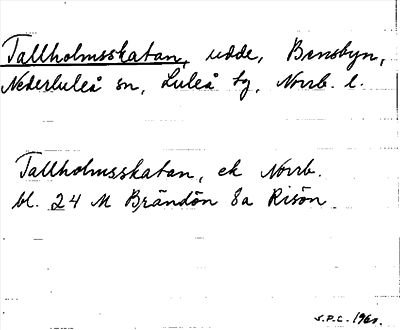 Tallholmsskatan, udde, Bensbyn,
Nederluleå sn, Luleå tg, Norrb. l.
Tallholmsskatan, ek Norrb.
bl. 24 M Brändön 8a Risön.
S.P.C. 1960.